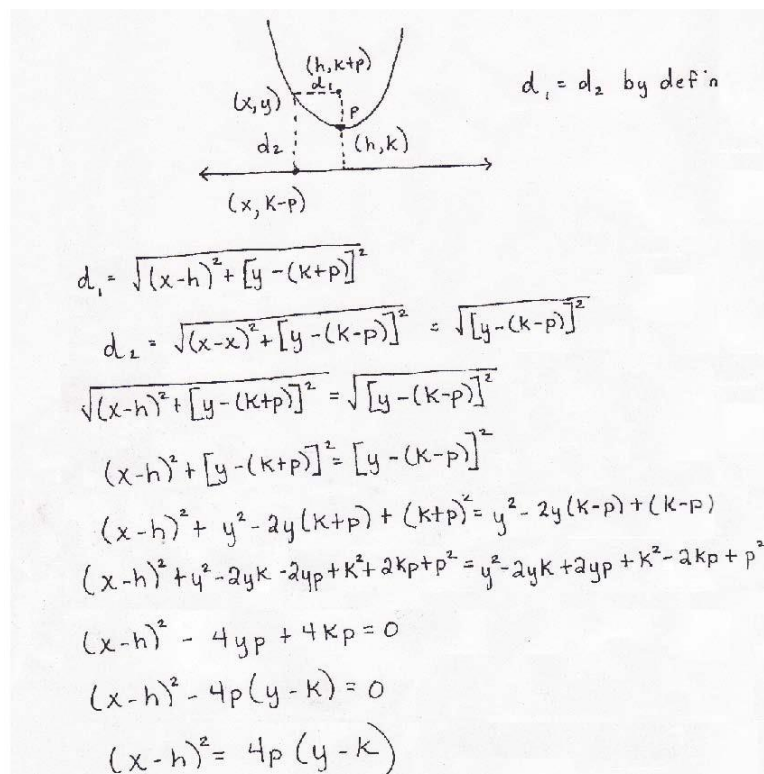 (h, k+p)
d₁ = d₂ by def'n
d₁
(x, y)
p
d₂
(h, k)
(x, k-p)
d₁ = √((x-h)² + [y-(k+p)]²)
d₂ = √((x-x)² + [y-(k-p)]²) = √([y-(k-p)]²)
√((x-h)² + [y-(k+p)]²) = √([y-(k-p)]²)
(x-h)² + [y-(k+p)]² = [y-(k-p)]²
(x-h)² + y² - 2y(k+p) + (k+p)² = y² - 2y(k-p) + (k-p)
(x-h)² + y² - 2yk - 2yp + k² + 2kp + p² = y² - 2yk + 2yp + k² - 2kp + p²
(x-h)² - 4yp + 4kp = 0
(x-h)² - 4p(y-k) = 0
(x-h)² = 4p(y-k)